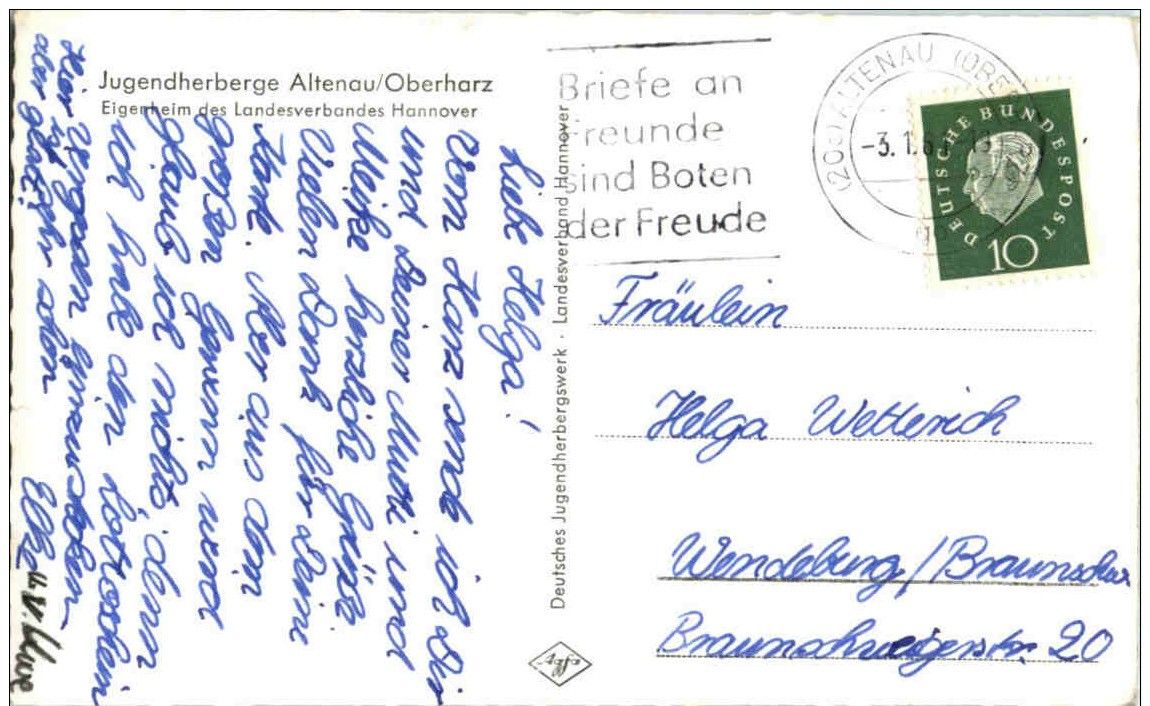 Jugendherberge Altenau/Oberharz
Eigenheim des Landesverbandes Hannover
Liebe Helga!
Vom Harz sende ich Dir
und Deiner Mutti und
Meike herzliche Grüße
Vielen Dank für Deine
Karte. Aber aus dem
großen Gewinn wird
glaub ich nichts denn
ich habe den Lottoschein
vergessen
Hier ist
aber sehr schön
Elke
u. V. Uwe
Deutsches Jugendherbergswerk · Landesverband Hannover
Briefe an
Freunde
sind Boten
der Freude
(20b) ALTENAU (OBER
-3.1.6
DEUTSCHE BUNDESPOST
10
Fräulein
Helga Wetterich
Wendeburg/Braunschw
Braunschweigerstr. 20